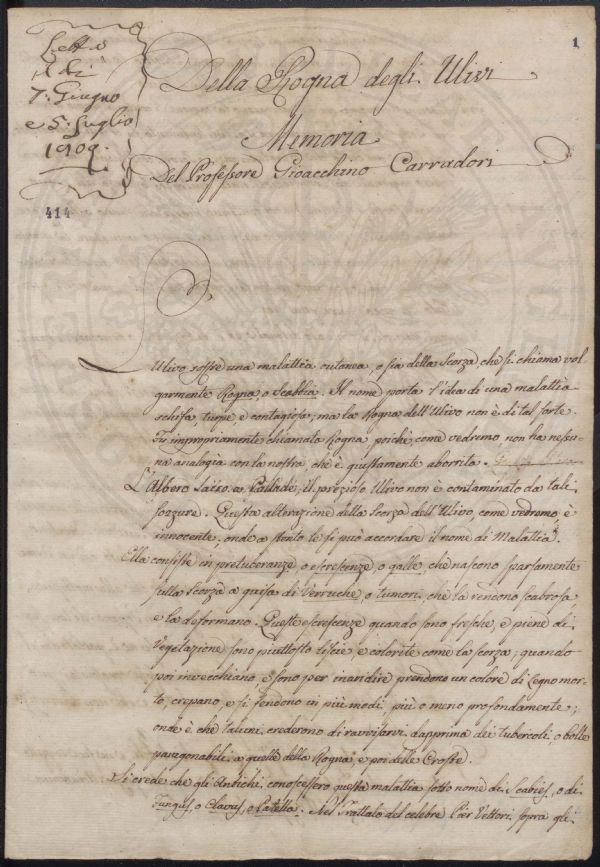 1
Letta
il dì
7. Giugno
e 5. Luglio
1809.
414
Della Rogna degli Ulivi
Memoria
Del Professore Gioacchino Carradori
L'
Ulivo soffre una malattia cutanea, o sia della Scorza, che si chiama vol
garmente Rogna o Scabbia. Il nome porta l'idea di una malattia
schifa, turpe e contagiosa; ma la Rogna dell'Ulivo non è di tal sorte.
Fu impropriamente chiamata Rogna, poichè, come vedremo, non ha nessu-
na analogia con la nostra, che è giustamente aborrita.
L'Albero sacro a Pallade, il prezioso Ulivo non è contaminato da tali
sozzure. Questa alterazione della Scorza dell'Ulivo, come vedremo, è
innocente, onde a stento le si può accordare il nome di Malattia.
Ella consiste in protuberanze, o escrescenze, o galle, che nascono sparsamente
sulla scorza a guisa di Verruche, o tumori, che la rendono scabrosa
e la deformano. Queste escrescenze quando sono fresche, e piene di
Vegetazione sono piuttosto liscie, e colorite come la scorza; quando
poi invecchiano e sono per inaridire prendono un colore di Legno mor-
to, crepano, e si fendono in più modi, più o meno profondamente;
onde è che taluni crederono di ravvisarvi dapprima dei tubercoli, o bolle
paragonabili a quelle della Rogna, e poi delle Croste.
Si crede che gli Antichi conoscessero questa malattia sotto nome di Scabies, o di
Fungus, o Clavus, o Patella. Nel Trattato del celebre Pier Vettori, sopra gli